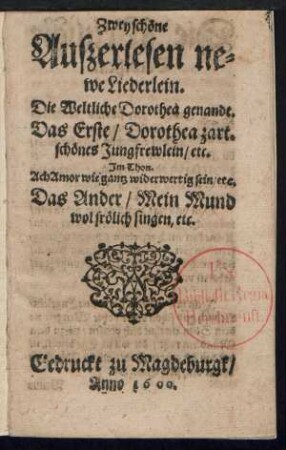 Zwey schöne
Auszerlesen ne-
we Liederlein.
Die Weltliche Dorothea genandt.
Das Erste / Dorothea zart.
schönes Jungfrewlein / etc.
Im Thon.
Ach Amor wie gantz widerwertig sein / etc.
Das Ander / Mein Mund
wol frölich singen, etc.
Gedruckt zu Magdeburgk /
Anno 1600.